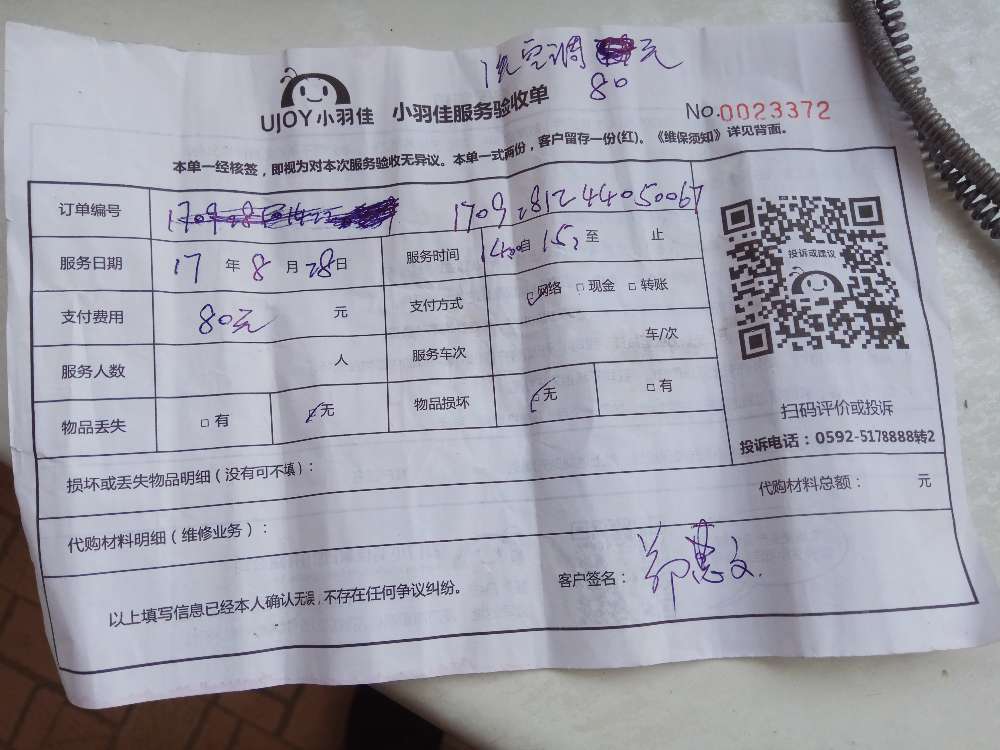 洗空调 元
80
UJOY小羽佳 小羽佳服务验收单
No.0023372
本单一经核签，即视为对本次服务验收无异议。本单一式两份，客户留存一份(红)。《维保须知》详见背面。
订单编号 1709281244050067
服务日期 17 年 8 月 28 日 服务时间 自 15: 至 止
支付费用 80元 元 支付方式 ☑网络 □现金 □转账
服务人数 人 服务车次 车/次
物品丢失 □有 ☑无 物品损坏 ☑无 □有
投诉或建议
扫码评价或投诉
投诉电话：0592-5178888转2
损坏或丢失物品明细（没有可不填）：
代购材料明细（维修业务）： 代购材料总额： 元
以上填写信息已经本人确认无误，不存在任何争议纠纷。 客户签名：郑惠文